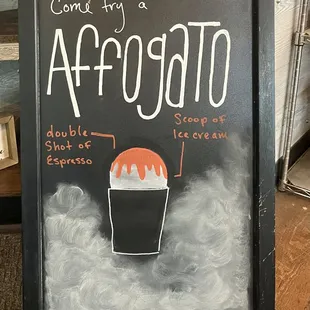 Come try a
AffogaTO
double
Shot of
Espresso
Scoop of
Ice cream